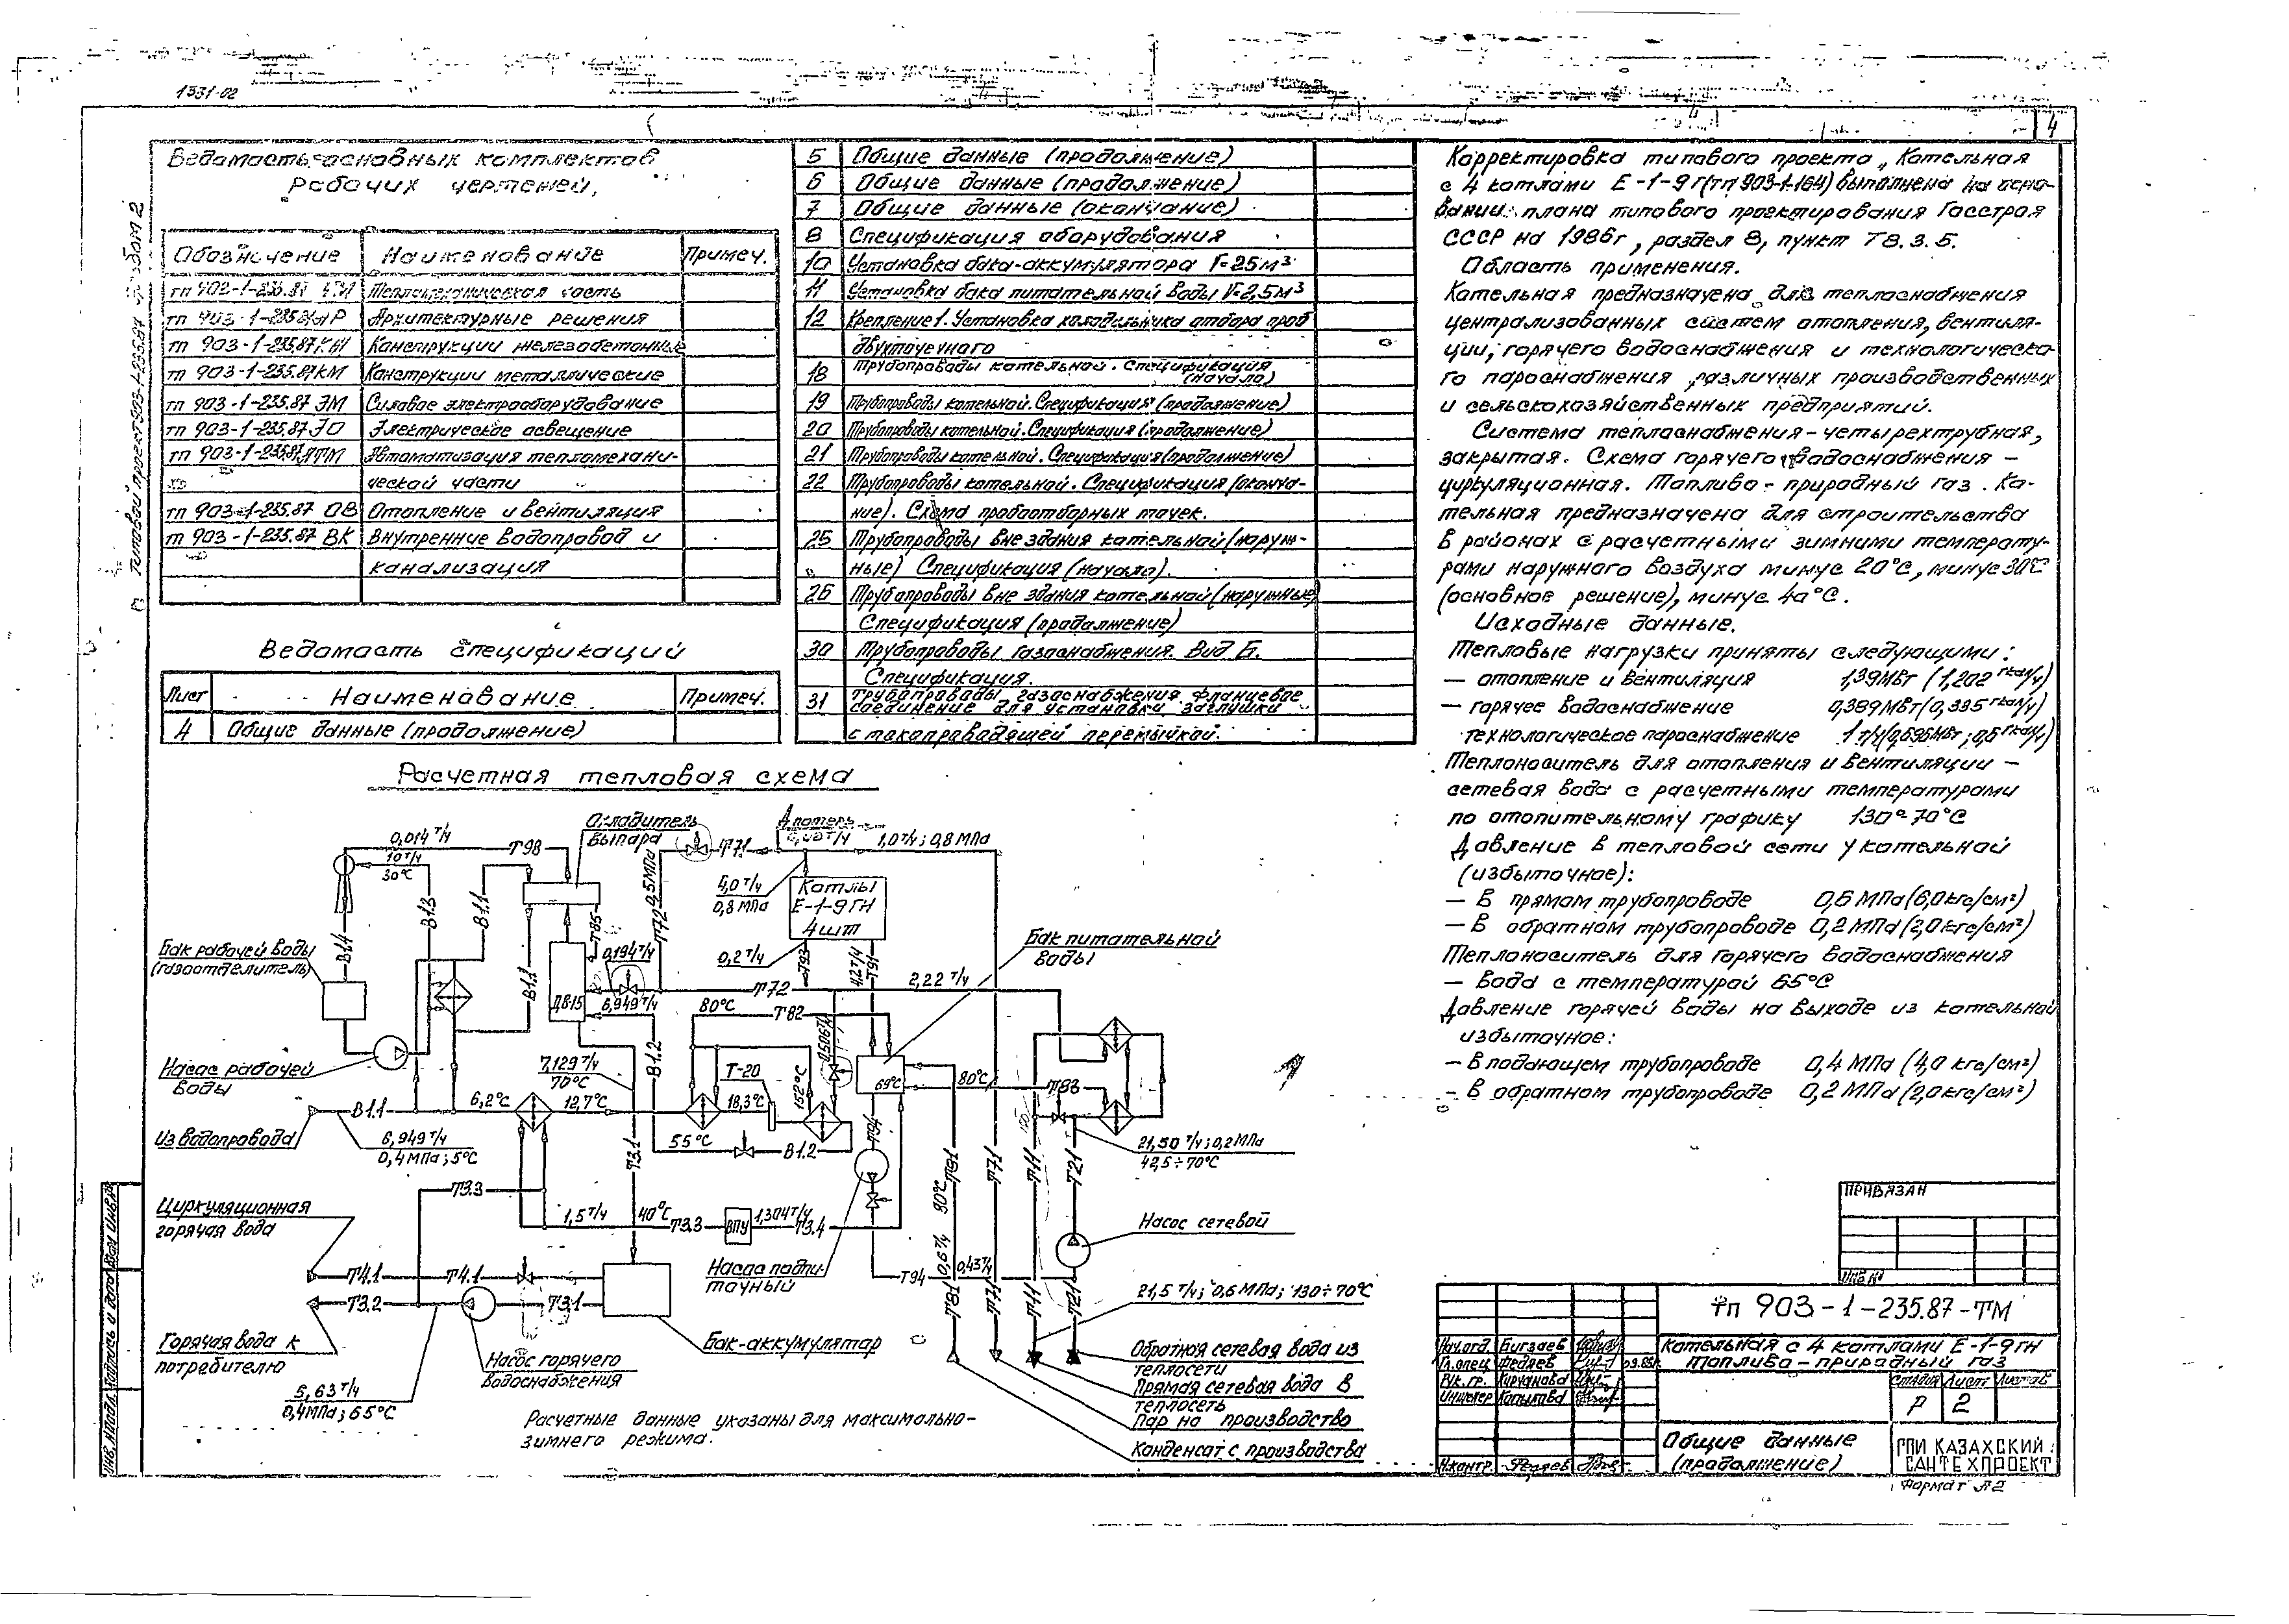 1531-02
4
Типовой проект 903-1-235.87 Альбом 2
Ведомость основных комплектов
рабочих чертежей.
Обозначение Наименование Примеч.
тп 903-1-235.87 ТМ Тепломеханическая часть
тп 903-1-235.87 АР Архитектурные решения
тп 903-1-235.87 КЖ Конструкции железобетонные
тп 903-1-235.87 КМ Конструкции металлические
тп 903-1-235.87 ЭМ Силовое электрооборудование
тп 903-1-235.87 ЭО Электрическое освещение
тп 903-1-235.87 АТМ Автоматизация тепломехани-
ческой части
тп 903-1-235.87 ОВ Отопление и вентиляция
тп 903-1-235.87 ВК Внутренние водопровод и
канализация
Ведомость спецификаций
Лист Наименование Примеч.
4 Общие данные (продолжение)
5 Общие данные (продолжение)
6 Общие данные (продолжение)
7 Общие данные (окончание)
8 Спецификация оборудования
10 Установка бака-аккумулятора V=25м³
11 Установка бака питательной воды V=2,5м³
12 Крепление 1. Установка холодильника отбора проб
двухточечного
18 Трубопроводы котельной. Спецификация (начало)
19 Трубопроводы котельной. Спецификация (продолжение)
20 Трубопроводы котельной. Спецификация (продолжение)
21 Трубопроводы котельной. Спецификация (продолжение)
22 Трубопроводы котельной. Спецификация (оконча-
ние). Схема пробоотборных точек.
25 Трубопроводы вне здания котельной (наруж-
ные) Спецификация (начало).
26 Трубопроводы вне здания котельной (наружные)
Спецификация (продолжение)
30 Трубопроводы газоснабжения. Вид Б.
Спецификация.
31 Трубопроводы газоснабжения фланцевое
соединение для установки заглушки
с токопроводящей перемычкой.
Корректировка типового проекта „Котельная
с 4 котлами Е-1-9Г (тп 903-1-164) выполнена на осно-
вании плана типового проектирования Госстроя
СССР на 1986г, раздел 8, пункт Т8.3.5.
Область применения.
Котельная предназначена для теплоснабжения
централизованных систем отопления, вентиля-
ции, горячего водоснабжения и технологическо-
го пароснабжения различных производственных
и сельскохозяйственных предприятий.
Система теплоснабжения - четырехтрубная,
закрытая. Схема горячего водоснабжения -
циркуляционная. Топливо - природный газ. Ко-
тельная предназначена для строительства
в районах с расчетными зимними температу-
рами наружного воздуха минус 20°С, минус 30°С
(основное решение), минус 40°С.
Исходные данные.
Тепловые нагрузки приняты следующими:
- отопление и вентиляция 1,39МВт (1,202 Гкал/ч)
- горячее водоснабжение 0,389МВт (0,335 Гкал/ч)
технологическое пароснабжение 1 т/ч
Теплоноситель для отопления и вентиляции -
сетевая вода с расчетными температурами
по отопительному графику 130-70°С
Давление в тепловой сети у котельной
(избыточное):
- в прямом трубопроводе 0,6 МПа (6,0 кгс/см²)
- в обратном трубопроводе 0,2 МПа (2,0 кгс/см²)
Теплоноситель для горячего водоснабжения
- вода с температурой 65°С
Давление горячей воды на выходе из котельной
избыточное:
- в подающем трубопроводе 0,4 МПа (4,0 кгс/см²)
- в обратном трубопроводе 0,2 МПа (2,0 кгс/см²)
Расчетная тепловая схема
Охладитель
выпара
Δ потерь
0,014 т/ч
Т98
10 т/ч
30°С
Т71
1,0 т/ч; 0,8 МПа
0,5 МПа
4,0 т/ч
0,8 МПа
Котлы
Е-1-9ГН
4 шт
В1.4
В1.3
В1.1
Т85
Т72
0,2 т/ч
Т93
4,2 т/ч
Т91
Бак питательной
воды
Бак рабочей воды
(газоотделитель)
В1.1
ДВ-15
0,194 т/ч
6,949 т/ч
Т72
2,22 т/ч
80°С
Т82
0,506 т/ч
Насос рабочей
воды
7,129 т/ч
70°С
В1.2
Т-20
152°С
69°С
80°С
Т83
В1.1
6,2°С
12,7°С
18,3°С
Из водопровода
6,949 т/ч
0,4 МПа; 5°С
55°С
В1.2
Т94
21,50 т/ч; 0,2 МПа
42,5÷70°С
Т3.1
Т81
Т71
Т11
Т21
Т3.3
Циркуляционная
горячая вода
1,5 т/ч
40°С
Т3.3
ВПУ
1,304 т/ч
Т3.4
80°С
0,6 т/ч
Насос сетевой
Насос подпи-
точный
Т94
0,43 т/ч
Т4.1
Т4.1
Т3.2
Т3.1
Т81
Т71
Т11
Т21
21,5 т/ч; 0,6 МПа; 130÷70°С
Горячая вода к
потребителю
Насос горячего
водоснабжения
Бак-аккумулятор
5,63 т/ч
0,4 МПа; 65°С
Обратная сетевая вода из
теплосети
Прямая сетевая вода в
теплосеть
Пар на производство
Конденсат с производства
Расчетные данные указаны для максимально-
зимнего режима.
ПРИВЯЗАН
Инв №
тп 903-1-235.87-ТМ
Нач.отд.
Гл.спец. Федяев
Рук. гр.
Инженер Копылова
Н.контр. Федяев
Котельная с 4 котлами Е-1-9ГН
Топливо - природный газ
Стадия Лист Листов
Р 2
Общие данные
(продолжение)
ГПИ КАЗАХСКИЙ
САНТЕХПРОЕКТ
Формат А2